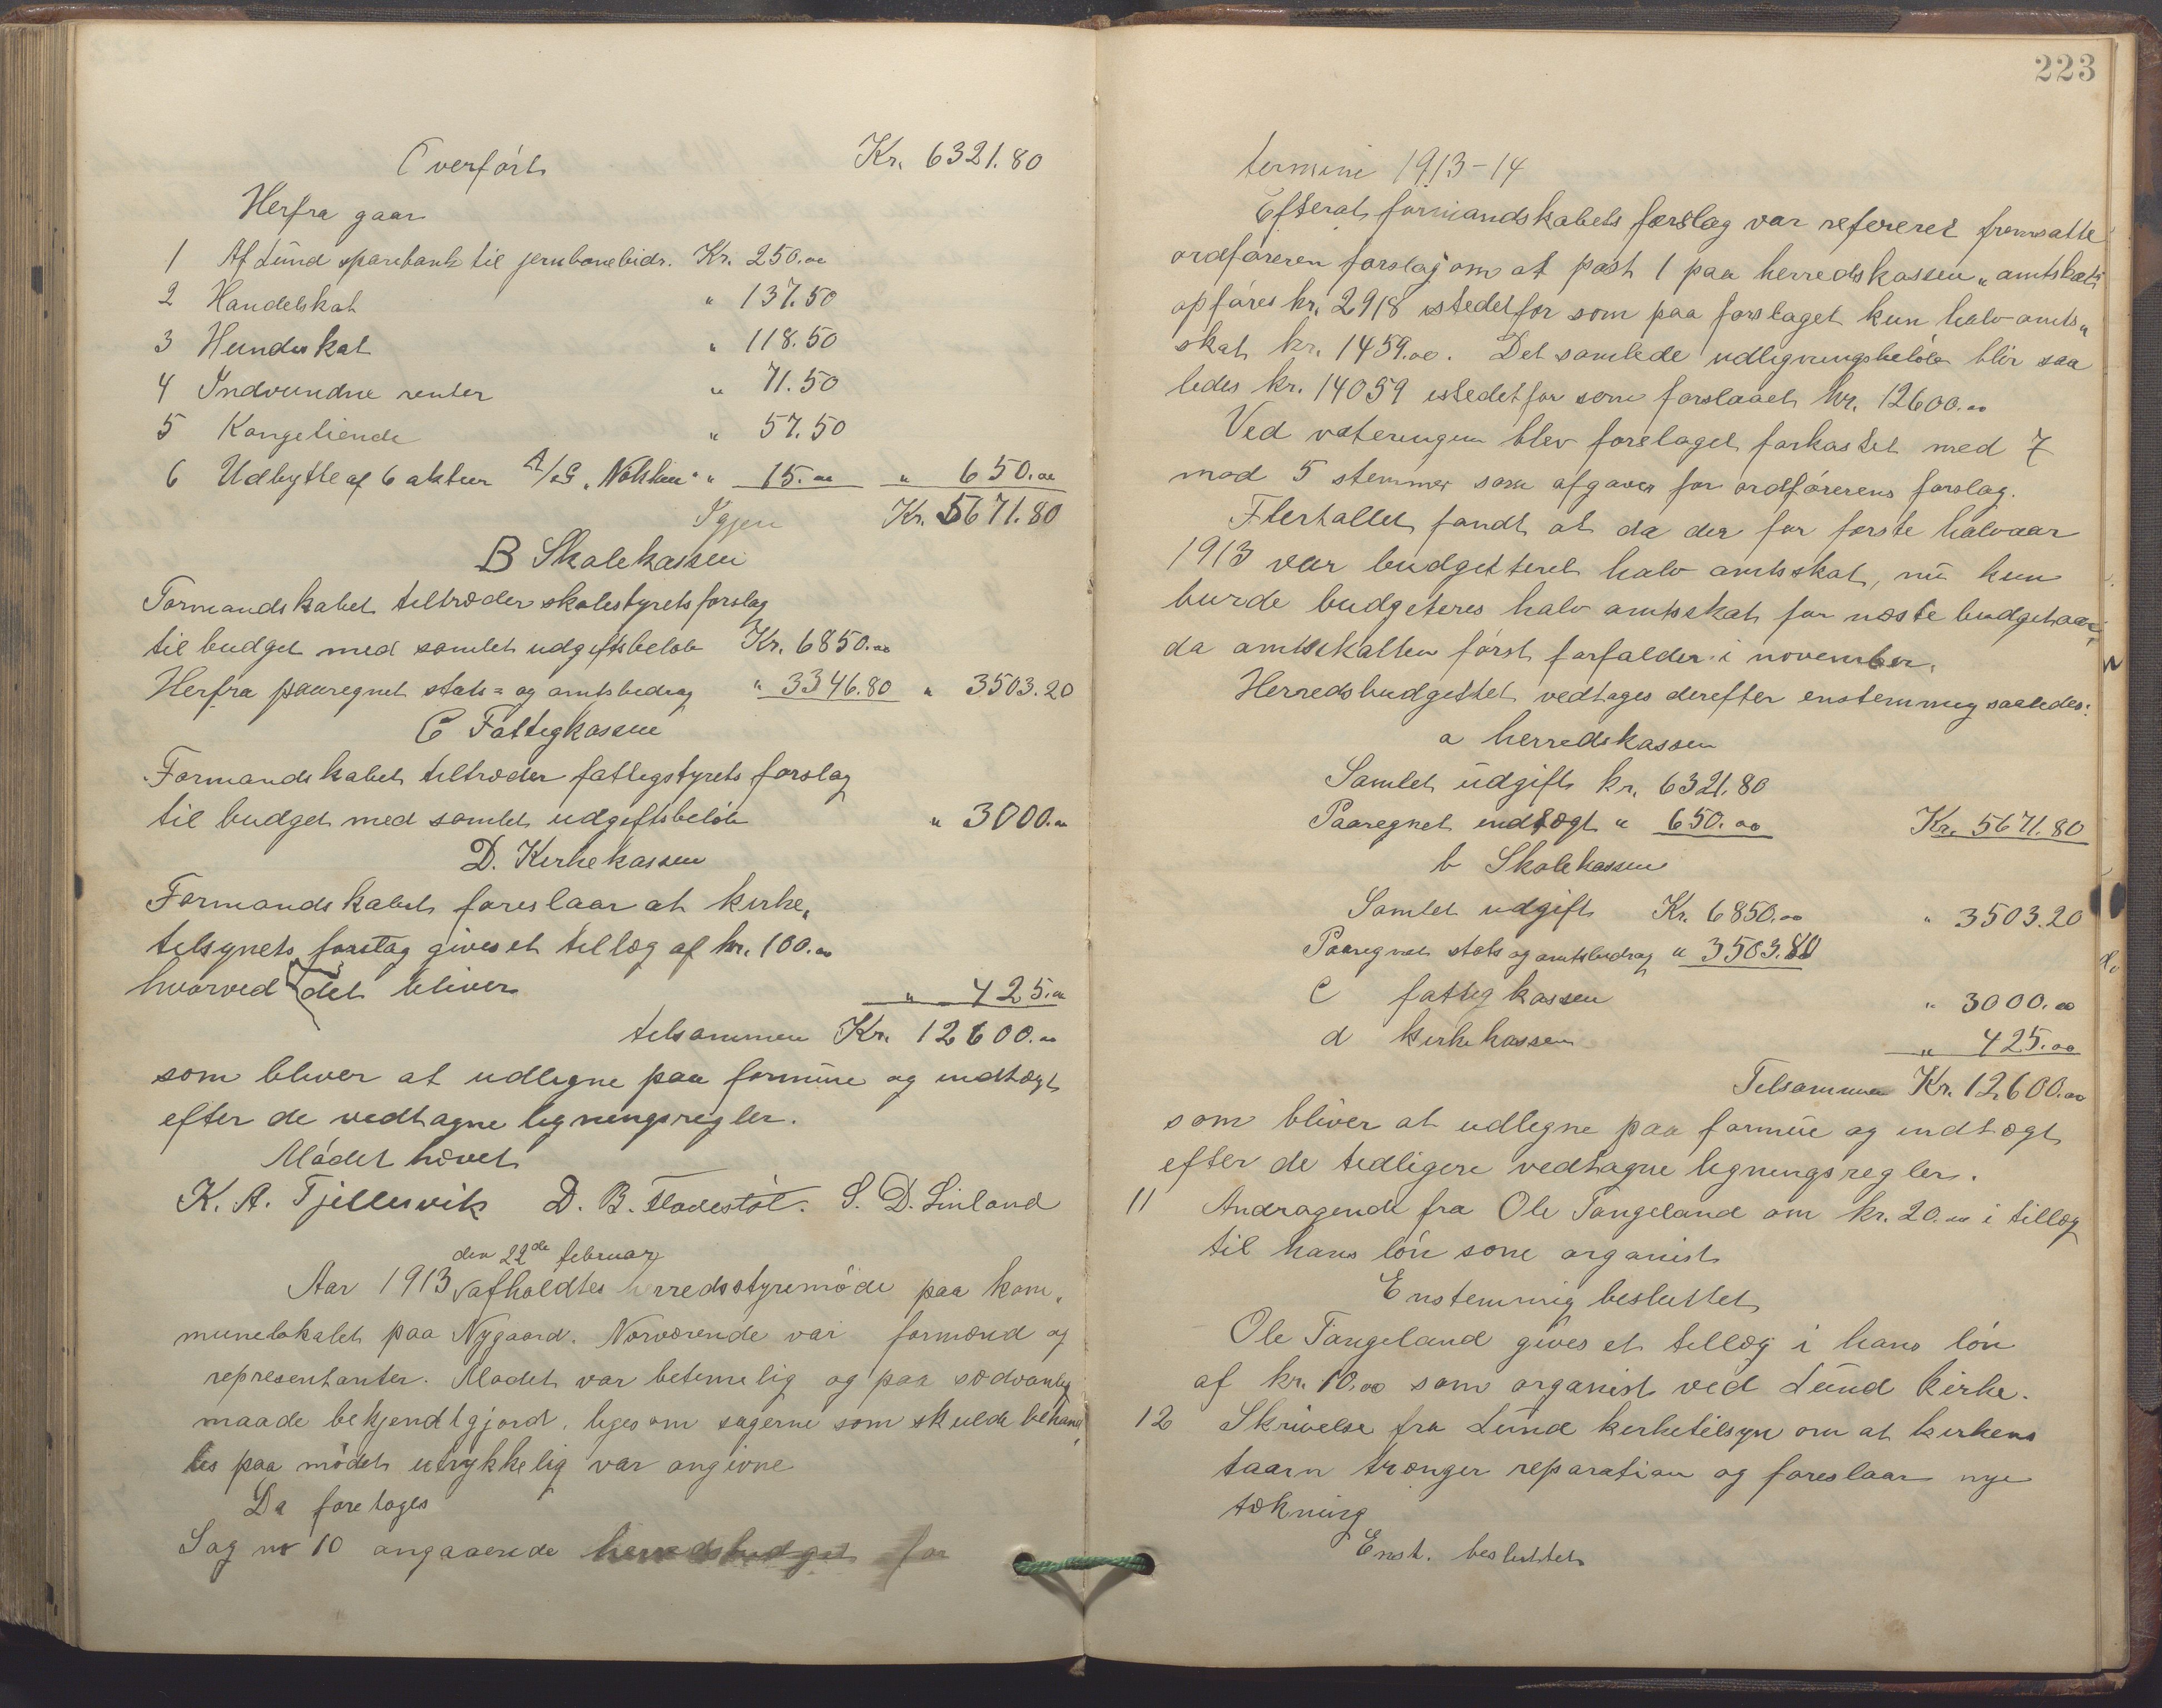 Overført Kr. 6321.80
Herfra gaar
1 Af Lund sparebank til jernbanebidr. Kr. 250.00
2 Handelskat " 137.50
3 Hundeskat " 118.50
4 Indvundne renter " 71.50
5 Kongetiende " 57.50
6 Udbytte af 6 aktier A/S „Nokken" " 15.00 " 650.00
Igjen Kr. 5671.80
B Skolekassen
Formandskabet tiltræder skolestyrets forslag
til budget med samlet udgiftsbeløb Kr. 6850.00
Herfra paaregnet stats= og amtsbidrag " 3346.80 " 3503.20
C Fattigkassen
Formandskabet tiltræder fattigstyrets forslag
til budget med samlet udgiftsbeløb " 3000.00
D. Kirkekassen
Formandskabet foreslaar at kirke„
tilsynets forslag gives et tillæg af kr. 100.00
hvorved det bliver " 425.00
tilsammen Kr. 12600.00
som bliver at udligne paa formue og indtægt
efter de vedtagne ligningsregler.
Mødet hævet
K. A. Tjellesvik D. B. Fladestøl. S. D. Linland
den 22de februar
Aar 1913 afholdtes herredsstyremøde paa kom„
munelokalet paa Nygaard. Nærværende var formænd og
representanter. Mødet var betimelig og paa sædvanlig
maade bekjendtgjord, ligesom sagerne som skulde behand„
les paa mødet utrykkelig var angivne
Da foretoges
Sag nr 10 angaaende herredsbudget for
223
termine 1913-14
Efterat formandskabets forslag var refereret fremsatte
ordføreren forslag om at post 1 paa herredskassen „amtskat"
opføres kr. 2918 istedetfor som paa forslaget kun halv amts„
skat kr. 1459.00. Det samlede udligningsbeløb blir saa
ledes kr. 14059 istedetfor som forslaaet kr. 12600.00
Ved voteringen blev forslaget forkastet med 7
mod 5 stemmer som afgaves for ordførerens forslag.
Flertallet fandt at da der for første halvaar
1913 var budgetteret halv amtsskat, nu kun
burde budgeteres halv amtsskat for næste budgetaar,
da amtsskatten først forfalder i november.
Herredsbudgettet vedtages derefter enstemmig saaledes:
a herredskassen
Samlet udgift kr. 6321.80
Paaregnet indtægt " 650.00 Kr. 5671.80
b Skolekassen
Samlet udgift Kr. 6850.00 " 3503.20
Paaregnet stats og amtsbidrag " 3503.80
C fattigkassen " 3000.00
d kirkekassen " 425.00
Tilsammen Kr. 12600.00
som bliver at udligne paa formue og indtægt
efter de tidligere vedtagne ligningsregler.
11 Andragende fra Ole Tangeland om kr. 20.00 i tillæg
til hans løn som organist
Enstemmig besluttet
Ole Tangeland gives et tillæg i hans løn
af kr. 10.00 som organist ved Lund kirke.
12 Skrivelse fra Lund kirketilsyn om at kirkens
taarn trænger reparation og foreslaar nye
tækning
Enst. besluttet